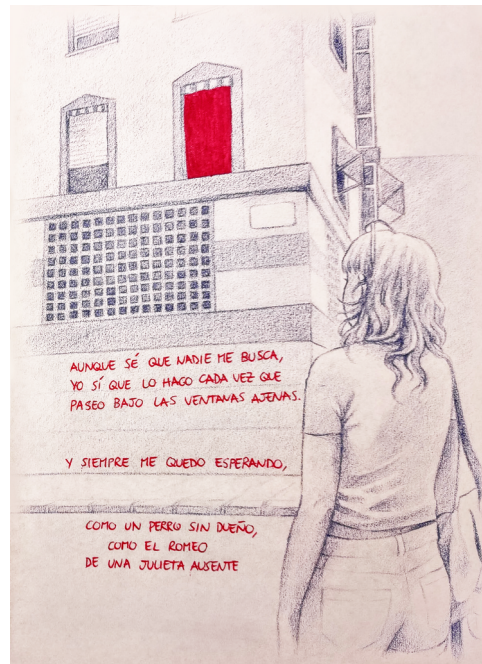 AUNQUE SÉ QUE NADIE ME BUSCA,
YO SÍ QUE LO HAGO CADA VEZ QUE
PASEO BAJO LAS VENTANAS AJENAS.
Y SIEMPRE ME QUEDO ESPERANDO,
COMO UN PERRO SIN DUEÑO,
COMO EL ROMEO
DE UNA JULIETA AUSENTE